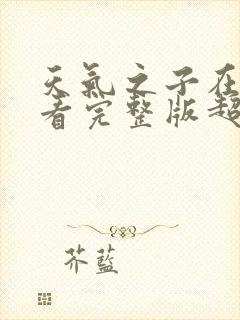 天氣之子在
看完整版超
芥藍